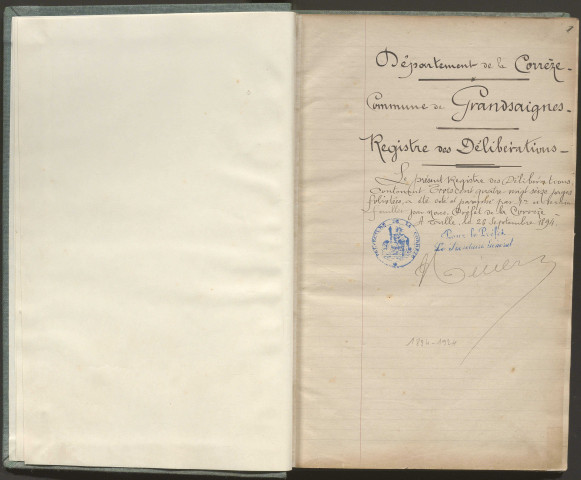 1
Département de la Corrèze -
Commune de Grandsaignes -
Registre des Délibérations -
Le présent Registre des Délibérations
Contenant Trois cent quatre vingt seize pages
foliotées, a été coté et paraphé par et
feuillet par nous, Préfet de la Corrèze -
A Tulle le 28 Septembre 1894.
Pour le Préfet
Le Secrétaire Général
PRÉFECTURE DE LA CORRÈZE
1894-1920